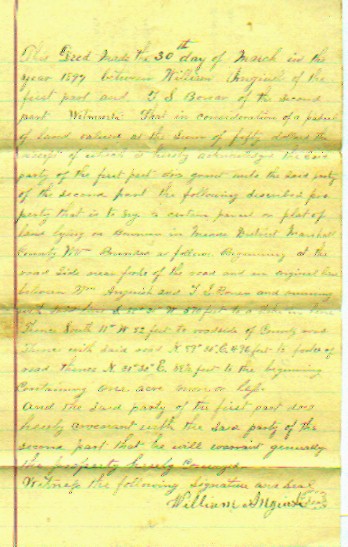 This Deed Made the 30th day of March in the
year 1897 between William Inginck of the
first part and T S Bowan of the second
part Witnesseth That in consideration of a parcel
of Land valued at the sum of fifty dollars the
receipt of which is hereby acknowledged the said
party of the first part dos grant unto the said party
of the second part the following described pro
perty that is to say a certain parcel or plat of
land lying on in Meade District Marshall
County Bounded as follows. Beginning at the
road side near forks of the road and an original line
between Wm and T S Bowan and running
with said line S. W. feet to a in line
Thence South W 52 feet to roadside of County road
Thence with said road N. 59° 30' E 496 feet to forks of
road thence N. E. feet to the beginning
Containing one acre more or less.
And the said party of the first part dos
hereby covenant with the said party of the
second part that he will warrant generally
the property hereby Conveyed.
Witness the following signature and seal
William Seal